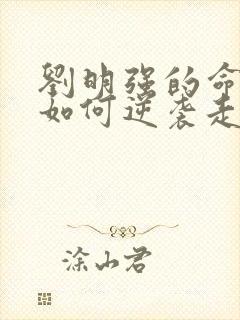 劉明强的命
如何逆袭走
涂山君